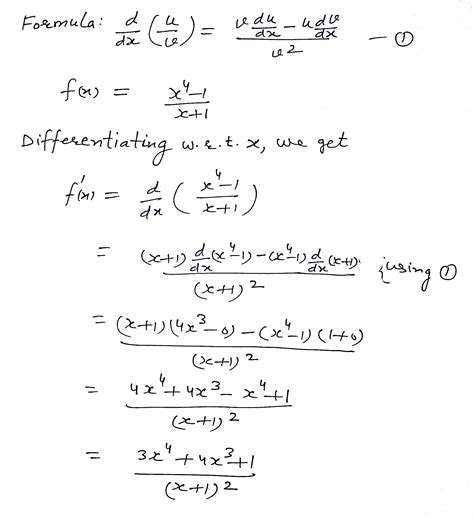 Formula: d/dx (u/v) = (v du/dx - u dv/dx)/v² — ①
f(x) = (x⁴-1)/(x+1)
Differentiating w.r.t. x, we get
f'(x) = d/dx ((x⁴-1)/(x+1))
= ((x+1) d/dx (x⁴-1) - (x⁴-1) d/dx (x+1))/(x+1)² {using ①
= ((x+1)(4x³-0) - (x⁴-1)(1+0))/(x+1)²
= (4x⁴+4x³-x⁴+1)/(x+1)²
= (3x⁴+4x³+1)/(x+1)²